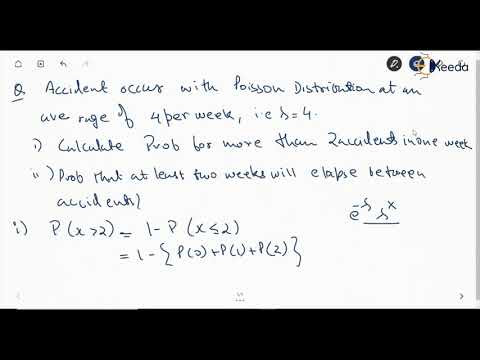 Keeda
Q Accident occurs with Poisson Distribution at an
average of 4 per week, i.e λ=4.
i) Calculate Prob for more than 2 accidents in one week
ii) Prob that at least two weeks will elapse between
accidents?
i) P(x>2) = 1-P(x≤2)
e^-λ λ^x
= 1-{P(0)+P(1)+P(2)}